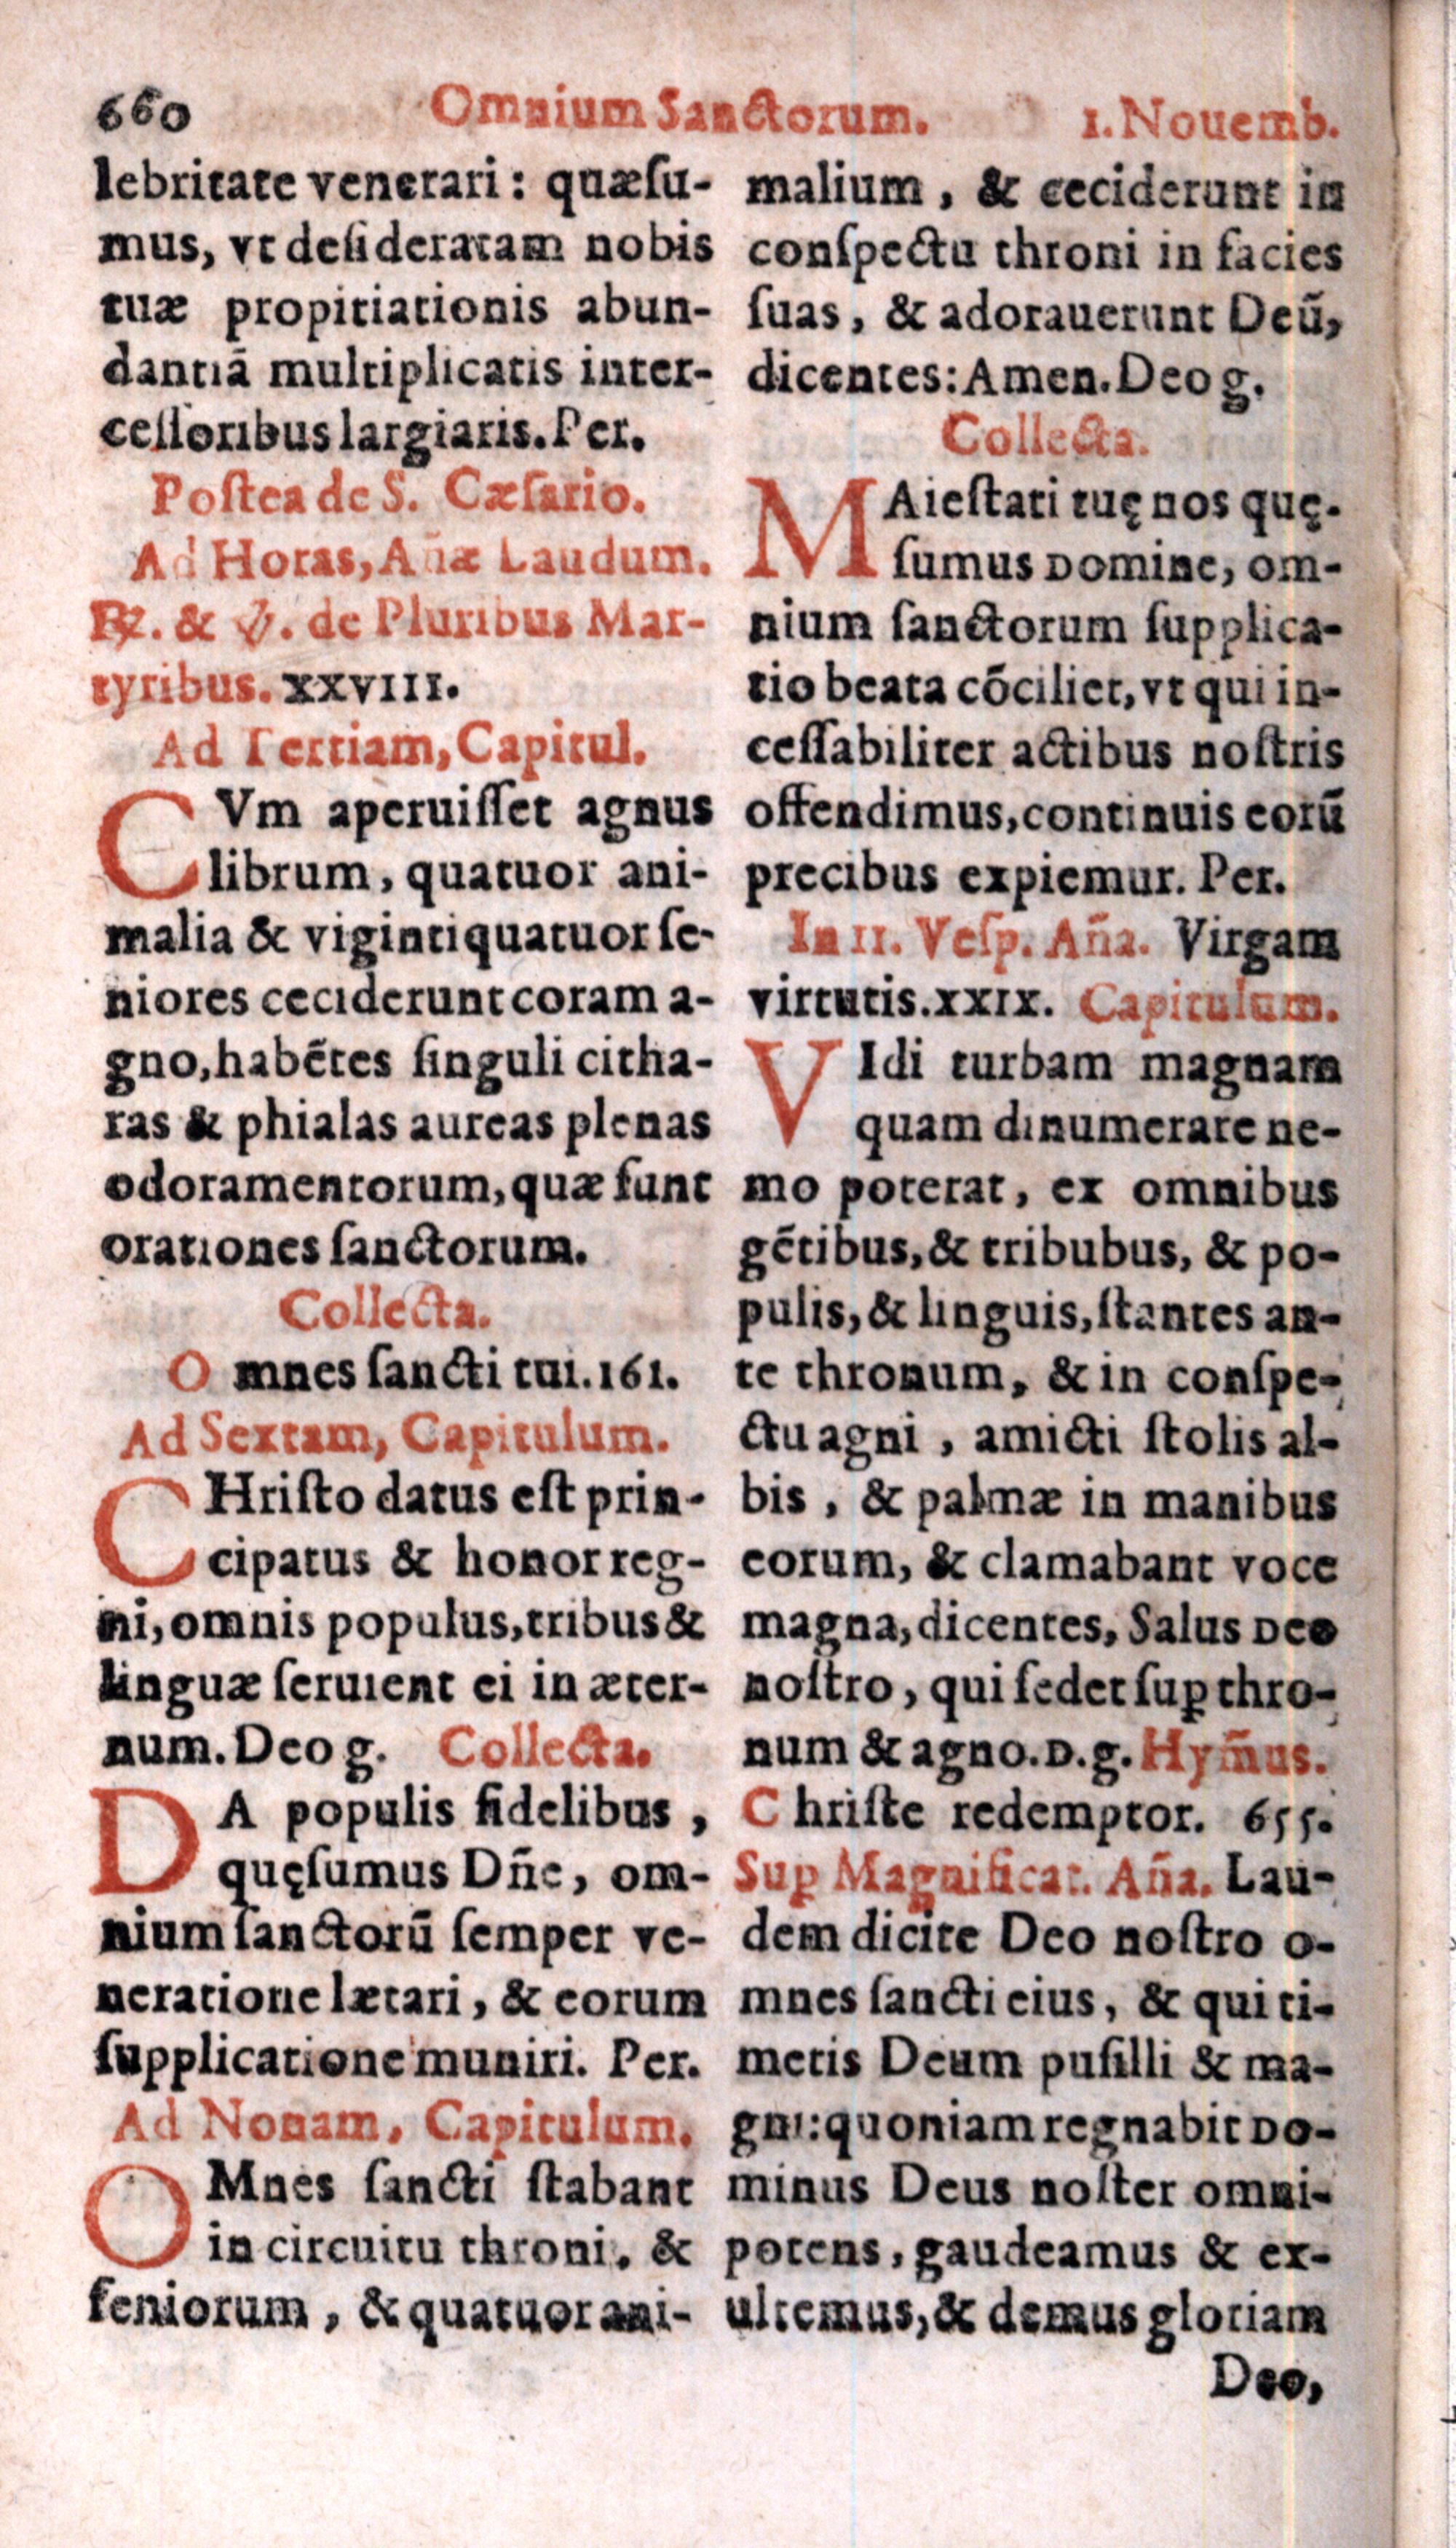 660 Omnium Sanctorum. 1. Nouemb.
lebritate venerari: quæſu-
mus, vt deſideratam nobis
tuæ propitiationis abun-
dantiā multiplicatis inter-
ceſſoribus largiaris. Per.
Poſtea de S. Cæſario.
Ad Horas, Añæ Laudum.
℟. & ℣. de Pluribus Mar-
tyribus. XXVIII.
Ad Tertiam, Capitul.
CVm aperuiſſet agnus
librum, quatuor ani-
malia & vigintiquatuor ſe-
niores ceciderunt coram a-
gno, habētes ſinguli citha-
ras & phialas aureas plenas
odoramentorum, quæ ſunt
orationes ſanctorum.
Collecta.
Omnes ſancti tui. 161.
Ad Sextam, Capitulum.
CHriſto datus eſt prin-
cipatus & honor reg-
ni, omnis populus, tribus &
linguæ ſeruient ei in æter-
num. Deo g. Collecta.
DA populis fidelibus,
quęſumus Dñe, om-
nium ſanctorū ſemper ve-
neratione lætari, & eorum
ſupplicatione muniri. Per.
Ad Nonam, Capitulum.
OMnes ſancti ſtabant
in circuitu throni, &
ſeniorum, & quatuor ani-
malium, & ceciderunt in
conſpectu throni in facies
ſuas, & adorauerunt Deū,
dicentes: Amen. Deo g.
Collecta.
MAieſtati tuę nos quę-
ſumus Domine, om-
nium ſanctorum ſupplica-
tio beata cōciliet, vt qui in-
ceſſabiliter actibus noſtris
offendimus, continuis eorū
precibus expiemur. Per.
In II. Veſp. Aña. Virgam
virtutis. XXIX. Capitulum.
VIdi turbam magnam
quam dinumerare ne-
mo poterat, ex omnibus
gētibus, & tribubus, & po-
pulis, & linguis, ſtantes an-
te thronum, & in conſpe-
ctu agni, amicti ſtolis al-
bis, & palmæ in manibus
eorum, & clamabant voce
magna, dicentes, Salus DEO
noſtro, qui ſedet ſuꝑ thro-
num & agno. D. g. Hym̄us.
Chriſte redemptor. 655.
Suꝑ Magnificat. Aña. Lau-
dem dicite Deo noſtro o-
mnes ſancti eius, & qui ti-
metis Deum puſilli & ma-
gni: quoniam regnabit DO-
minus Deus noſter omni-
potens, gaudeamus & ex-
ultemus, & demus gloriam
Deo,